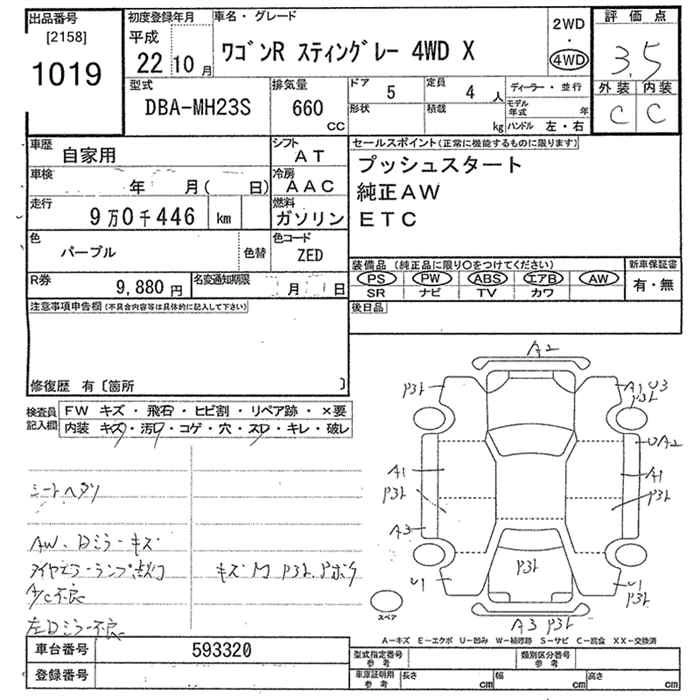 出品番号
[2158]
1019
初度登録年月
平成
22 10 月
車名・グレード
ワゴンR スティングレー 4WD X
2WD
・
4WD
評価点
3.5
外装 内装
C C
型式
DBA-MH23S
排気量
660
CC
ドア 5
定員 4 人
形状
積載 kg
ディーラー・並行
モデル年式 年
ハンドル 左・右
車歴
自家用
シフト
AT
車検
年 月( 日)
冷房
AAC
走行
9万0千446 km
燃料
ガソリン
色
パープル
色替
色コード
ZED
R券
9,880 円
名変通知期限
月 日
セールスポイント(正常に機能するものに限ります)
プッシュスタート
純正AW
ETC
装備品 (純正品に限り○をつけてください)
PS PW ABS エアB AW
SR ナビ TV カワ
新車保証書
有・無
後日品
注意事項申告欄(不具合内容等は具体的に記入して下さい)
修復歴 有〔箇所 〕
検査員記入欄
FW キズ・飛石・ヒビ割・リペア跡・×要
内装 キズ・汚レ・コゲ・穴・スレ・キレ・破レ
シートヘタリ
AW、Dミラーキズ
タイヤエラーランプ点灯
A/C不良
左Dミラー不良
A2
P31
A1 U3
P31
UA2
A1
P31
A1
P31
A3
U1
P31
U1
P31
A3 P31
スペア
A−キズ E−エクボ U−凹み W−補修跡 S−サビ C−腐食 XX−交換済
車台番号
593320
登録番号
型式指定番号
参考
類別区分番号
参考
車庫証明用
参考
長さ cm
幅 cm
高さ cm